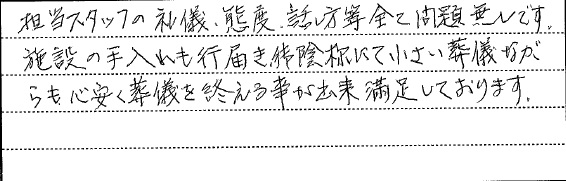 担当スタッフの礼儀、態度、話し方等全て問題無しです。
施設の手入れも行届き御陰様にて小さい葬儀なが
らも心安く葬儀を終える事が出来満足しております。